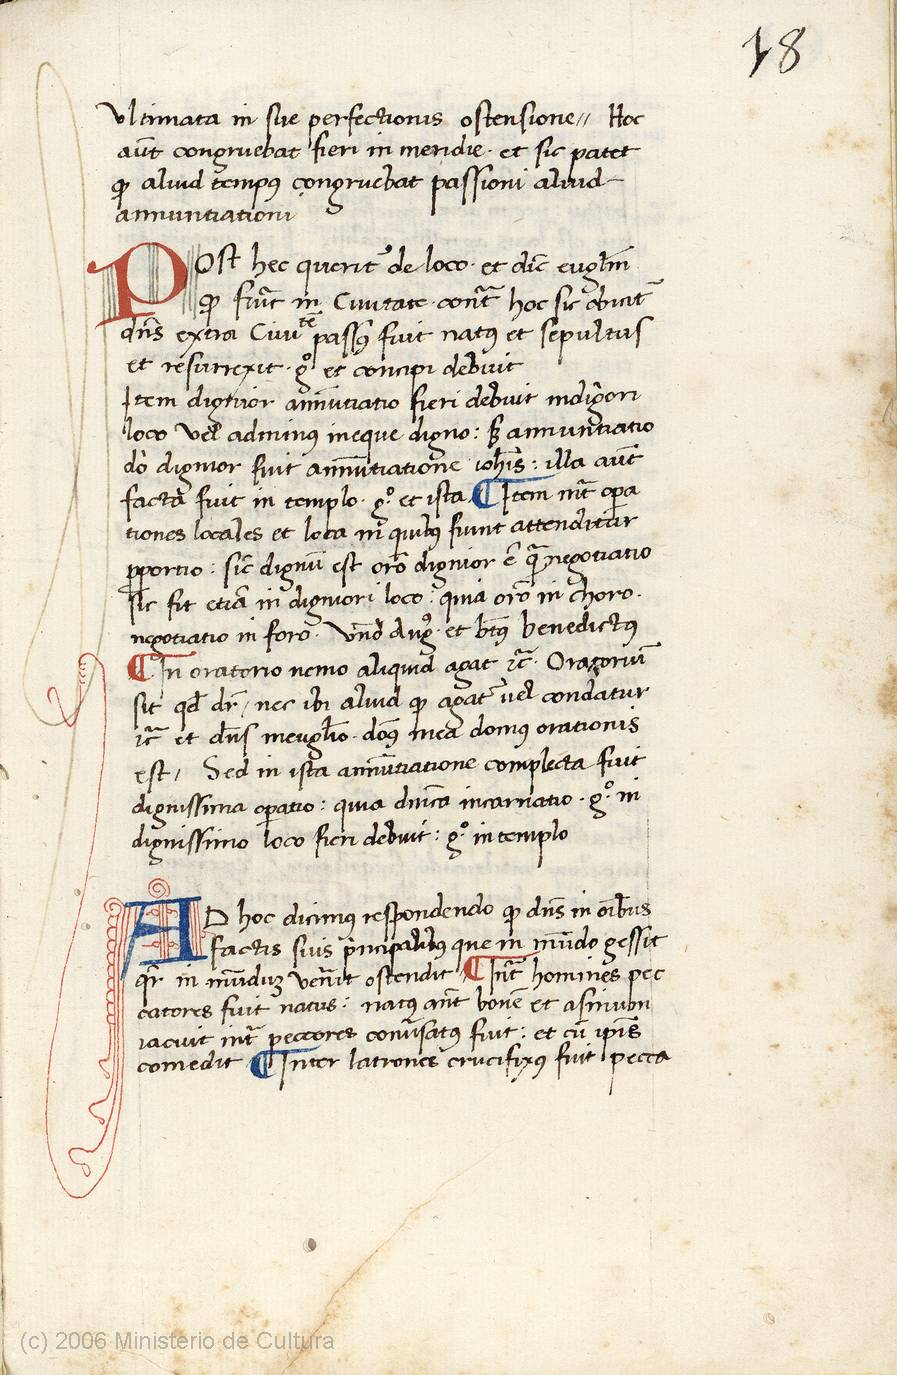 18
Vltimata in sue perfectionis ostensione // Hoc
aūt congruebat fieri in meridie · et sic patet
ꝙ aliud tempꝰ congruebat passioni aliud
annuntiationi
POst hec querit᷑ de loco · et dic̄ euglm̄
ꝙ fiūt in Ciuitate · contᷓ hoc sic obicit᷑
dn̄s extra Ciuitē passꝰ fuit natꝰ et sepultus
et resurrexit · gͦ et concipi debuit
Item dignior annūtiatio fieri debuit in digīori
loco Vel ad minꝰ in eque digno : sꝫ annuntiatio
dō dignior fuit annūtiatione ioh̄is : illa aūt
facta fuit in templo · gͦ · et ista ¶ Item int̄ opa
tiones locales et loca in quibꝰ fiunt attenditur
ꝓportio : sic dignū est orō dignior ē qᷓ negotiatio
sic fit etiā in digniori loco : quia orō in choro ·
negotiatio in foro · Vnd̄ Augꝰ · et bt̄ꝰ benedictꝰ
¶ In oratorio nemo aliquid agat ⁊c̄ · Oratoriū
sit qd̄ dr̄ / nec ibi aliud ꝙ agat᷑ uel condatur
⁊c̄ et dn̄s in euglīo · domꝰ mea domus orationis
est / Sed in ista annūtiatione complecta fuit
dignissima opatio : quia diuīca incarnatio · gͦ · in
dignissimo loco fieri debuit : gͦ · in templo
AD hoc dicimꝰ respondendo ꝙ dn̄s in oībus
factis suis pͥncipalibꝰ que in mūdo gessit
qr̄ in mūduꝫ Venīt ostendit ¶ Int̄ homines pec
catores fuit natus : natꝰ aūt bouē et asinum
iacuit int̄ peccōres conūsatꝰ fuit : et cū ipīs
comedit ¶ Inter latrones crucifixꝰ fuit pecca
(c) 2006 Ministerio de Cultura